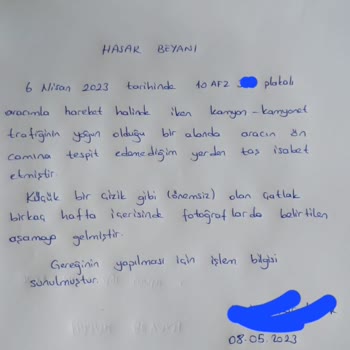 HASAR BEYANI
6 Nisan 2023 tarihinde 10 AFZ plakalı
aracımla hareket halinde iken kamyon-kamyonet
trafiğinin yoğun olduğu bir alanda aracın ön
camına tespit edemediğim yerden taş isabet
etmiştir.
Küçük bir çizik gibi (önemsiz) olan çatlak
birkaç hafta içerisinde fotoğraflarda belirtilen
aşamaya gelmiştir.
Gereğinin yapılması için işlem bilgisi
sunulmuştur.
08.05.2023